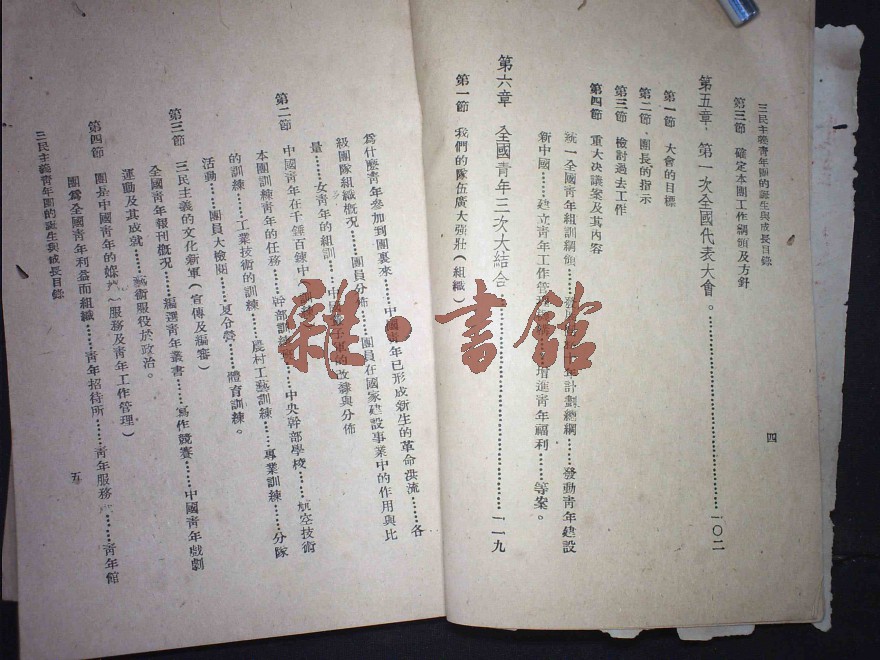 三民主義青年團的誕生與成長目錄
第三節 確定本團工作綱領及方針
第五章 第一次全國代表大會。……一〇二
第一節 大會的目標
第二節 團長的指示
第三節 檢討過去工作
第四節 重大决議案及其內容
統一全國青年組訓綱領……發
十年計劃總綱……發動青年建設
新中國……建立青年工作管理
增進青年福利……等案。
第六章 全國青年三次大結合……一一九
第一節 我們的隊伍廣大强壯(組織)
四
為什麽青年參加到團裏來……中國青年已形成新生的革命洪流……各
級團隊組織概况……團員分佈……團員在國家建設事業中的作用與比
量……女青年的組訓……中國童子軍的改隸與分佈
第二節 中國青年在千錘百鍊中
本團訓練青年的任務……幹部訓練
中央幹部學校……航空技術
的訓練……工業技術的訓練……農村工藝訓練……專業訓練……分隊
活動……團員大檢閱……夏令營……體育訓練。
第三節 三民主義的文化新軍(宣傳及編審)
全國青年報刊概况……編選青年叢書……寫作競賽……中國青年戲劇
運動及其成就……藝術服役於政治。
第四節 團是中國青年的媬姆(服務及青年工作管理)
團為全國青年利益而組織……青年招待所……青年服務……青年館
三民主義青年團的誕生與成長目錄
五
雜·書館